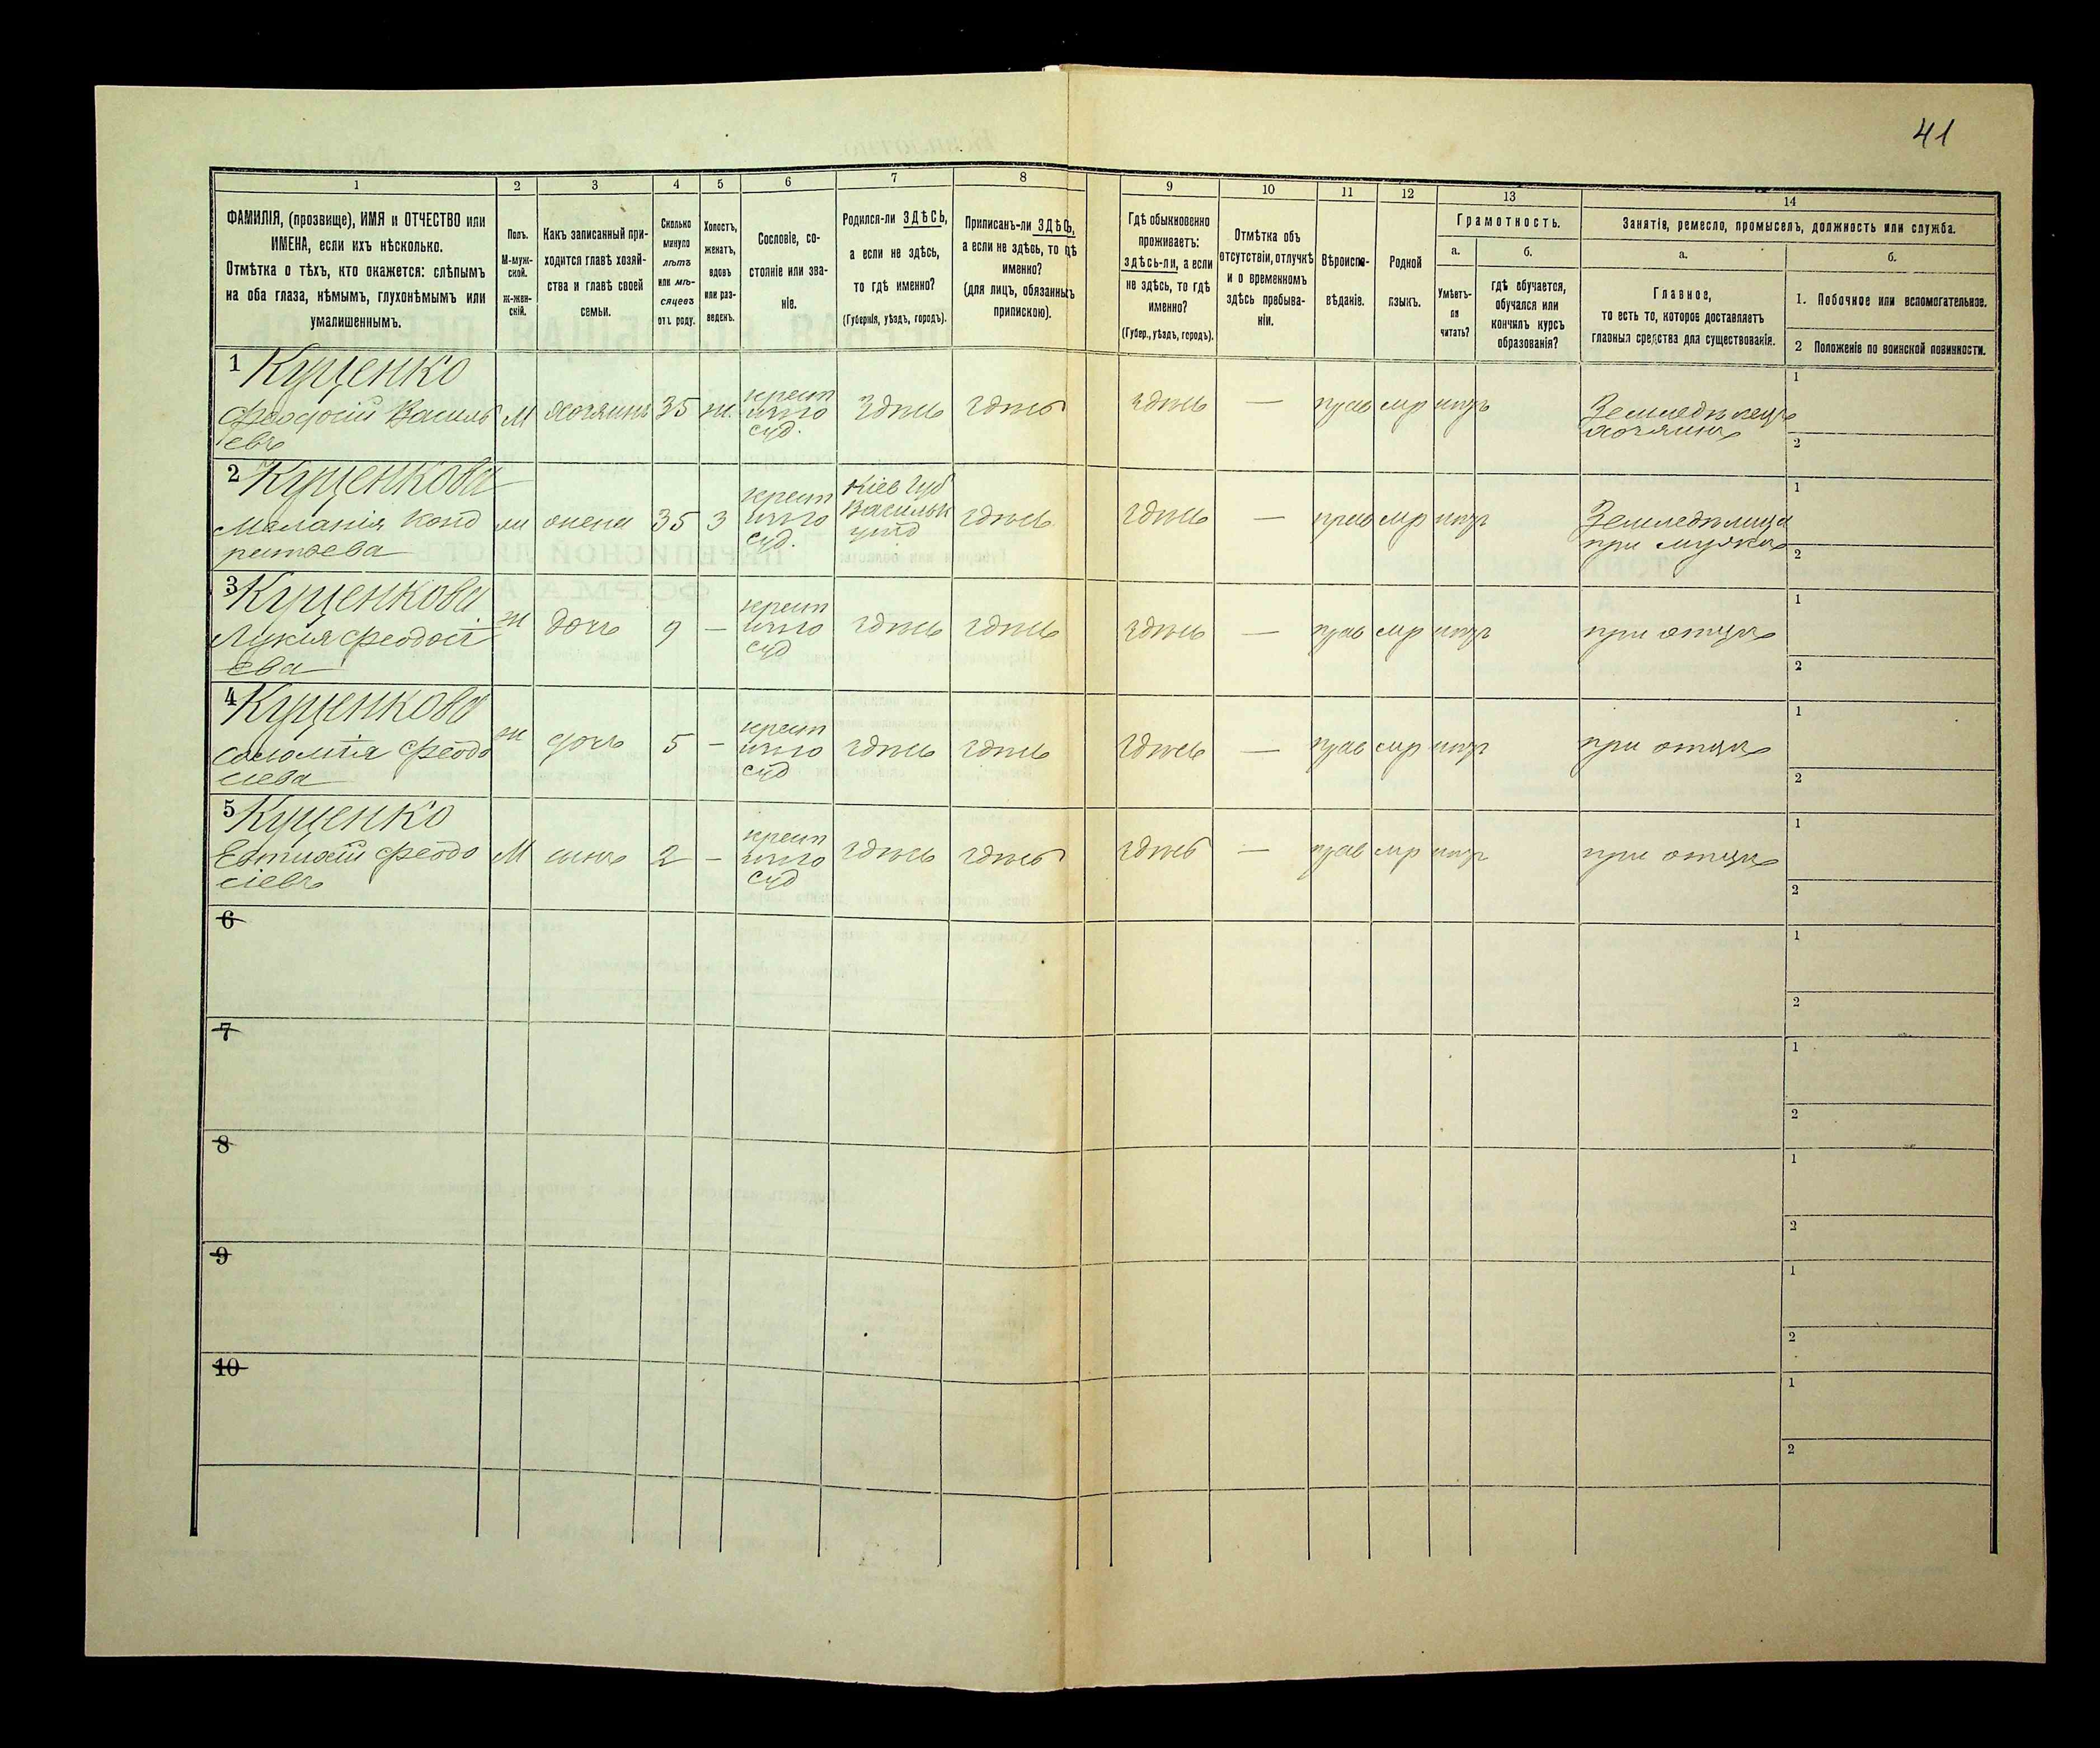 41
1 2 3 4 5 6 7 8 9 10 11 12 13 14
ФАМИЛІЯ, (прозвище), ИМЯ и ОТЧЕСТВО или
ИМЕНА, если ихъ нѣсколько.
Отмѣтка о тѣхъ, кто окажется: слѣпымъ
на оба глаза, нѣмымъ, глухонѣмымъ или
умалишеннымъ.
Полъ.
М-муж-
ской.
ж-жен-
скій.
Какъ записанный при-
ходится главѣ хозяй-
ства и главѣ своей
семьи.
Сколько
минуло
лѣтъ
или мѣ-
сяцевъ
отъ роду.
Холостъ,
женатъ,
вдовъ
или раз-
веденъ.
Сословіе, со-
стояніе или зва-
ніе.
Родился-ли ЗДѢСЬ,
а если не здѣсь,
то гдѣ именно?
(Губернія, уѣздъ, городъ).
Приписанъ-ли ЗДѢСЬ,
а если не здѣсь, то гдѣ
именно?
(для лицъ, обязанныхъ
припискою).
Гдѣ обыкновенно
проживаетъ:
здѣсь-ли, а если
не здѣсь, то гдѣ
именно?
(Губер., уѣздъ, городъ).
Отмѣтка объ
отсутствіи, отлучкѣ
и о временномъ
здѣсь пребыва-
ніи.
Вѣроиспо-
вѣданіе.
Родной
языкъ.
Грамотность.
а.
Умѣетъ-
ли
читать?
б.
гдѣ обучается,
обучался или
кончилъ курсъ
образованія?
Занятіе, ремесло, промыселъ, должность или служба.
а.
Главное,
то есть то, которое доставляетъ
главныя средства для существованія.
б.
1. Побочное или вспомогательное.
2 Положеніе по воинской повинности.
1 Куценко
Феодосій Василь
евъ
М хозяинъ 35 ж. крест
суд.
здѣсь здѣсь здѣсь — прав мр нѣтъ
Земледѣлецъ
хозяинъ
1
2
2 Куценкова
Меланія Конд
ратьева
жена 35 з крест
суд.
Кіев Губ
Васильк
уѣзд
здѣсь здѣсь — прав мр нѣтъ
при мужѣ
1
2
3 Куценкова
Лукія Феодосі
ева
ж дочь 9 — крест
суд
здѣсь здѣсь здѣсь — прав мр нѣтъ при отцѣ
1
2
4 Куценкова
Соломія Феодо
сіева
ж дочь 5 — крест
суд
здѣсь здѣсь здѣсь — прав мр нѣтъ при отцѣ
1
2
5 Куценко
Евтихій Феодо
сіевъ
М сынъ 2 — крест
суд
здѣсь здѣсь здѣсь — прав мр нѣтъ при отцѣ
1
2
6
1
2
7
1
2
8
1
2
9
1
2
10
1
2